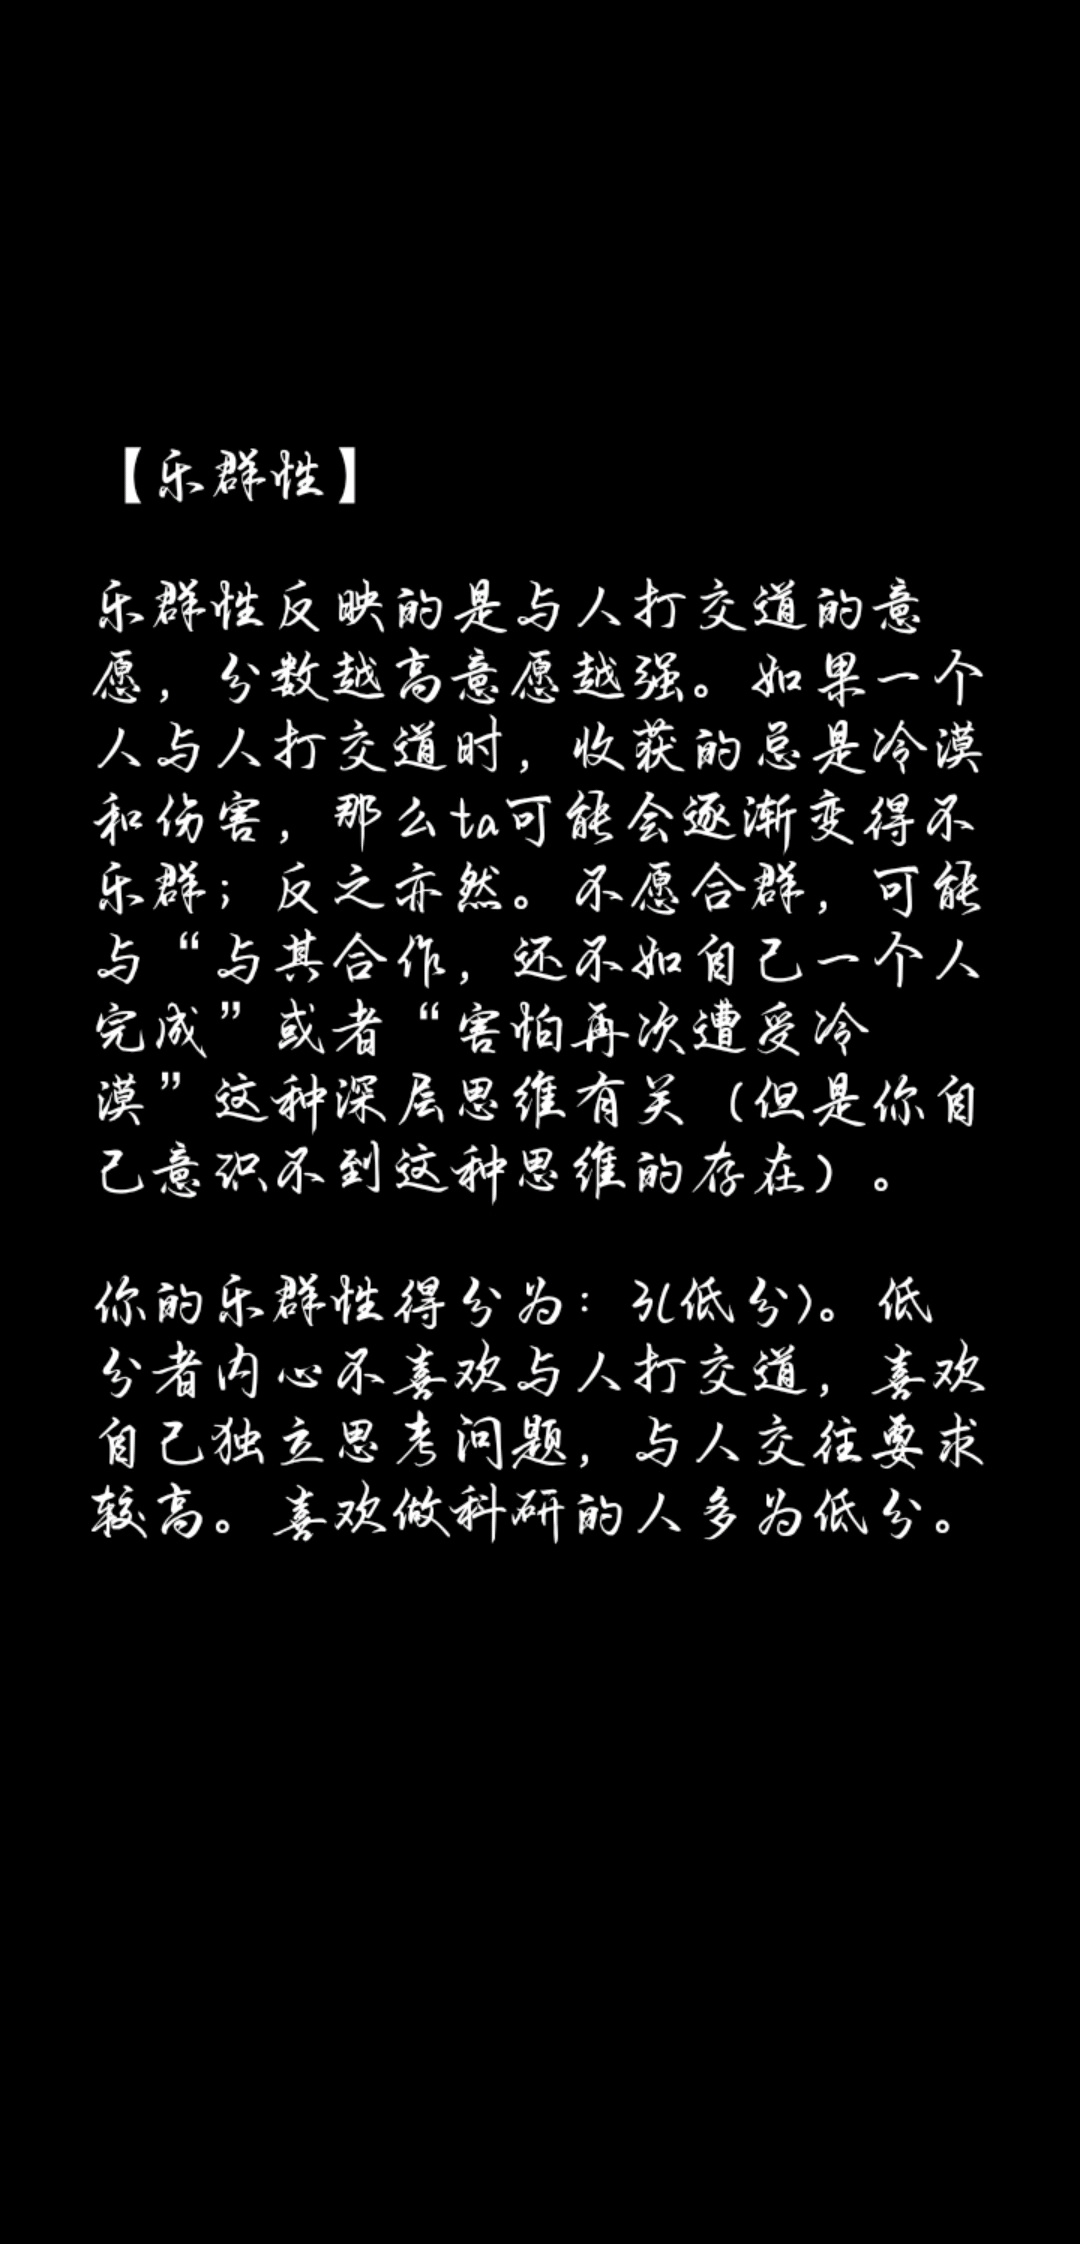 【乐群性】
乐群性反映的是与人打交道的意
愿，分数越高意愿越强。如果一个
人与人打交道时，收获的总是冷漠
和伤害，那么ta可能会逐渐变得不
乐群；反之亦然。不愿合群，可能
与“与其合作，还不如自己一个人
完成”或者“害怕再次遭受冷
漠”这种深层思维有关（但是你自
己意识不到这种思维的存在）。
你的乐群性得分为：3(低分)。低
分者内心不喜欢与人打交道，喜欢
自己独立思考问题，与人交往要求
较高。喜欢做科研的人多为低分。